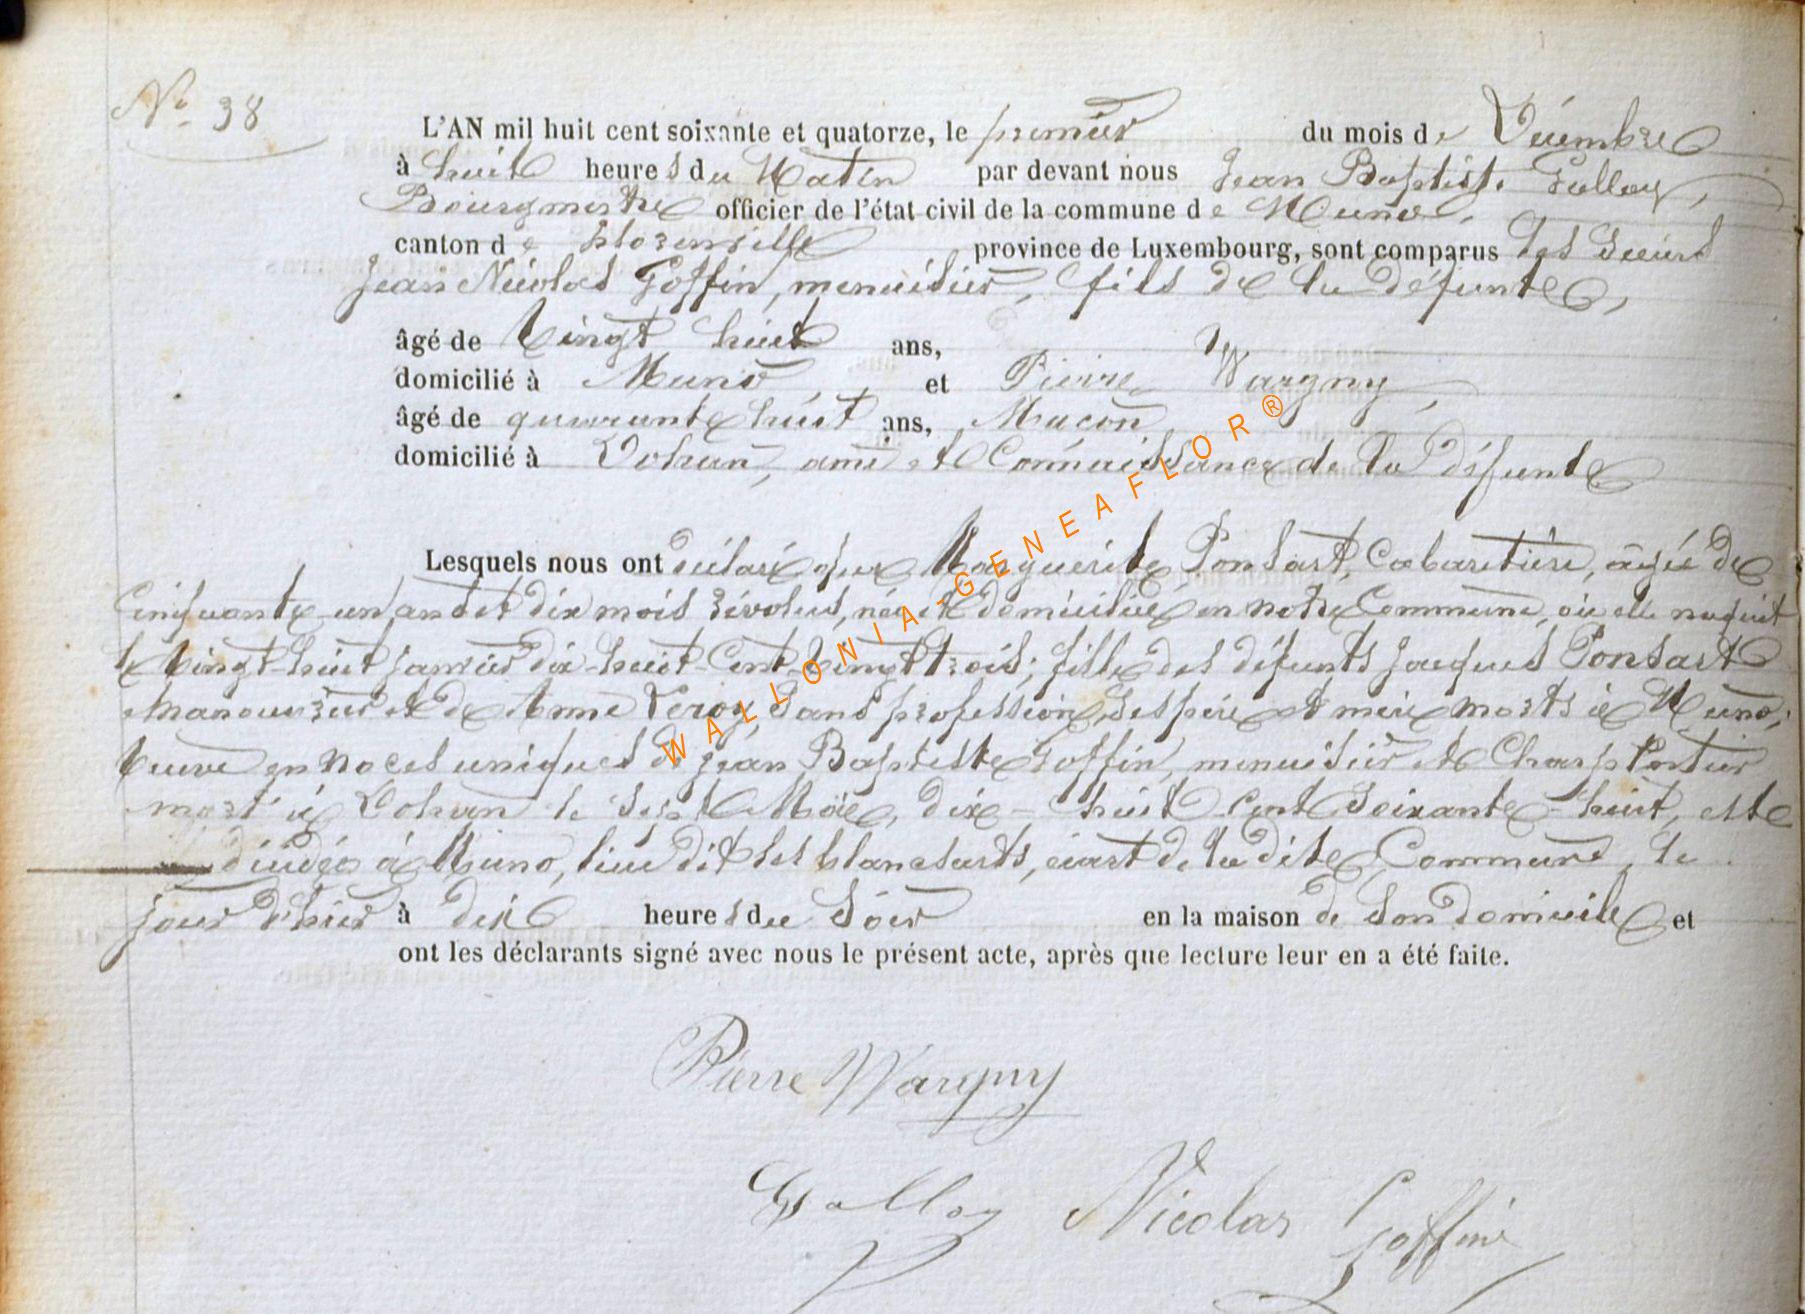 N° 38
L'AN mil huit cent soixante et quatorze, le premier du mois de Décembre
à huit heures du Matin par devant nous Jean Baptiste Galloy,
Bourgmestre officier de l'état civil de la commune de Muno,
canton de Florenville province de Luxembourg, sont comparus les Sieurs
Jean Nicolas Goffin, menuisier, fils de la défunte,
âgé de Vingt huit ans,
domicilié à Muno, et Pierre Wargny,
âgé de quarante huit ans, Maçon
domicilié à Dohan, ami et Connaissance de la Défunte
Lesquels nous ont déclaré que Marguerite Ponsart, Cabaretière, âgée de
Cinquante un ans et dix mois révolus, née et domiciliée en notre Commune, où elle naquit
le Vingt-huit janvier dix-huit-Cent-Vingt trois; fille des défunts Jacques Ponsart
Manouvrier et de Anne Leroy, Sans profession, Ses père et mère morts à Muno;
Veuve en noces uniques de Jean Baptiste Goffin, menuisier et Charpentier
mort à Dohan le Sept Mai, dix-huit-Cent Soixante-huit, est
décédée à Muno, lieu dit les blancsarts, écart de la dite Commune, le
jour d'hier à dix heures du Soir en la maison de Son domicile et
ont les déclarants signé avec nous le présent acte, après que lecture leur en a été faite.
WALLONIA-GENEAFLOR®
Pierre Wargny
Galloy Nicolas Goffin